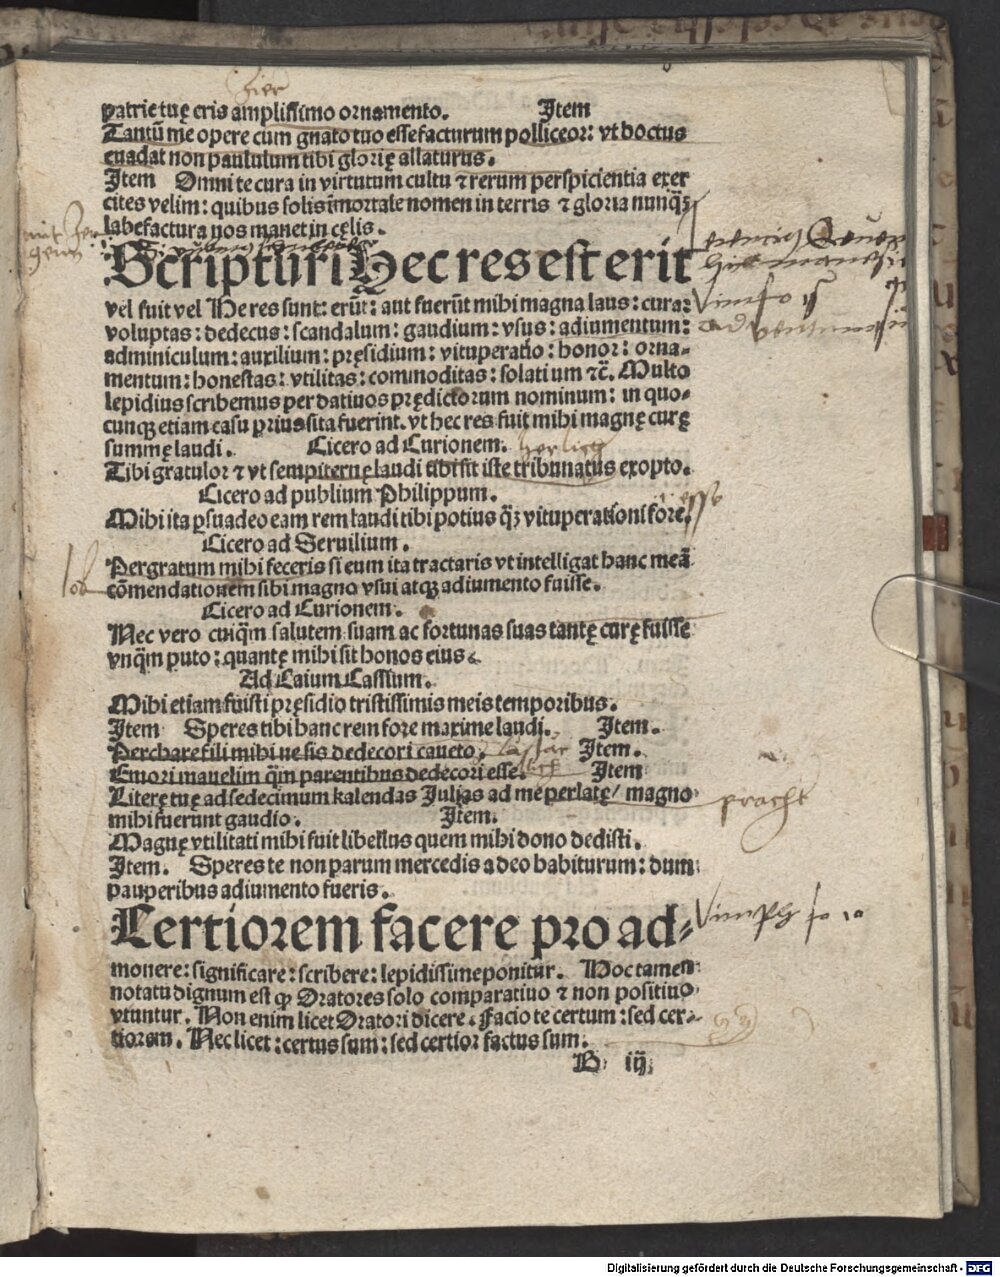 zier
patrie tuę eris amplissimo ornamento. Item
Tantū me opere cum gnato tuo esse facturum polliceor: vt doctus
euadat non paululum tibi glorię allaturus.
Item Omni te cura in virtutum cultu ⁊ rerum perspicientia exer
cites velim: quibus solis īmortale nomen in terris ⁊ gloria nunq̄ꝫ
labefactura nos manet in cęlis.
Scripturi Hec res est erit
vel fuit vel He res sunt: erūt: aut fuerūt mihi magna laus: cura:
voluptas: dedecus: scandalum: gaudium: vsus: adiumentum:
adminiculum: auxilium: pręsidium: vituperatio: honor: orna-
mentum: honestas: vtilitas: commoditas: solatium ⁊c̄. Multo
lepidius scribemus per datiuos prędictorum nominum: in quo-
cunqꝫ etiam casu prius sita fuerint. vt hec res fuit mihi magnę curę
summę laudi. Cicero ad Curionem.
Tibi gratulor ⁊ vt sempiternę laudi tibi sit iste tribunatus exopto.
Cicero ad publium Philippum.
esse
Mihi ita ꝑsuadeo eam rem laudi tibi potius q̄ꝫ vituperationi fore.
Cicero ad Seruilium.
lob
Pergratum mihi feceris si eum ita tractaris vt intelligat hanc meā
cōmendationem sibi magno vsui atqꝫ adiumento fuisse.
Cicero ad Curionem.
Nec vero cuiq̄m salutem suam ac fortunas suas tantę curę fuisse
vnq̄m puto: quantę mihi sit honos eius.
Ad Caium Cassium.
Mihi etiam fuisti pręsidio tristissimis meis temporibus.
Item Speres tibi hanc rem fore maxime laudi. Item.
Perchare fili mihi ne sis dedecori caueto. Item.
Emori mauelim q̄m parentibus dedecori esse. Item
Literę tuę ad sedecimum kalendas Julias ad me perlatę/ magno
pracht
mihi fuerunt gaudio. Item.
Magnę vtilitati mihi fuit libellus quem mihi dono dedisti.
Item. Speres te non parum mercedis a deo habiturum: dum
pauperibus adiumento fueris.
Certiorem facere pro ad-
monere: significare: scribere: lepidissime ponitur. Hoc tamen
notatu dignum est ꝙ Oratores solo comparatiuo ⁊ non positiuo
vtuntur. Non enim licet Oratori dicere. Facio te certum: sed cer-
tiorem. Nec licet: certus sum: sed certior factus sum.
B iij
Digitalisierung gefördert durch die Deutsche Forschungsgemeinschaft - DFG